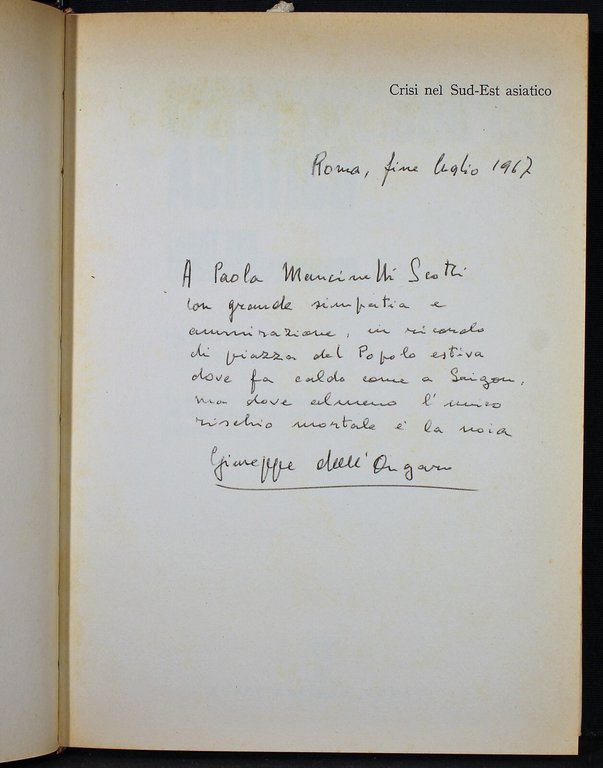 Crisi nel Sud-Est asiatico
Roma, fine luglio 1967
A Paola Mancinelli Scotti
con grande simpatia e
ammirazione, in ricordo
di piazza del Popolo estiva
dove fa caldo come a Saigon,
ma dove almeno l'unico
rischio mortale è la noia
Giuseppe dall'Ongaro